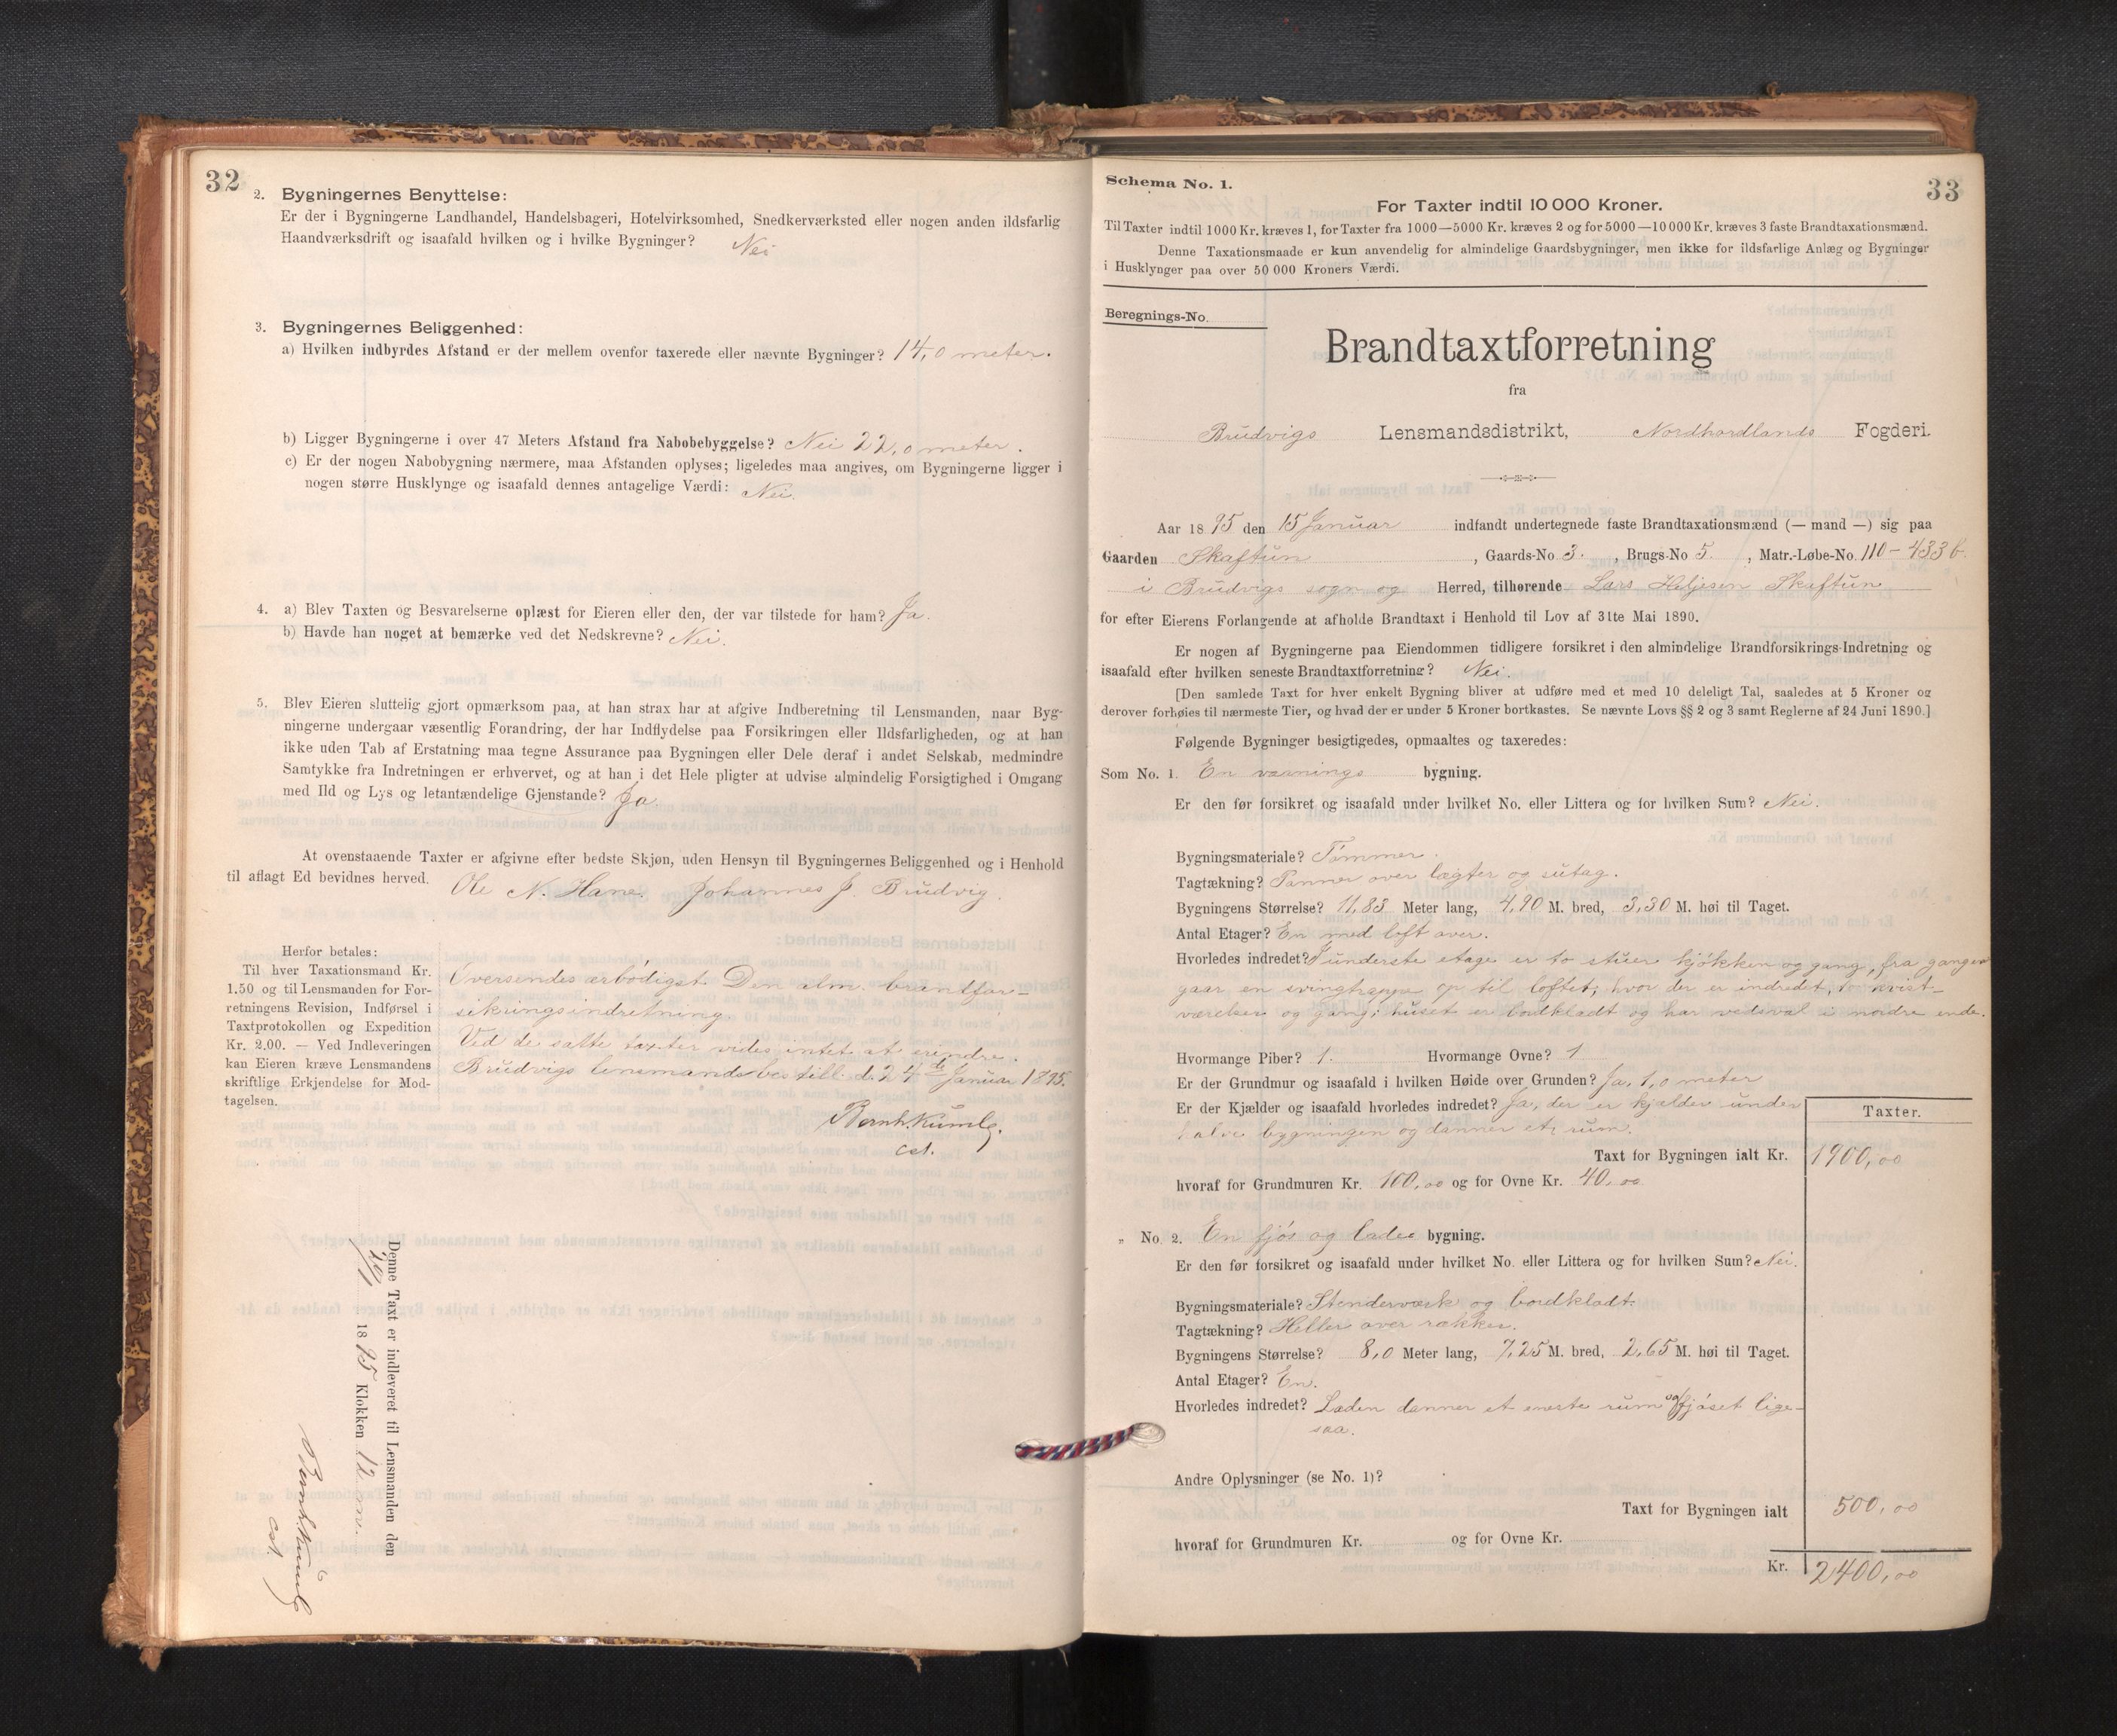 32
2. Bygningernes Benyttelse:
Er der i Bygningerne Landhandel, Handelsbageri, Hotelvirksomhed, Snedkerværksted eller nogen anden ildsfarlig
Haandværksdrift og isaafald hvilken og i hvilke Bygninger? Nei
3. Bygningernes Beliggenhed:
a) Hvilken indbyrdes Afstand er der mellem ovenfor taxerede eller nævnte Bygninger? 14,0 meter.
b) Ligger Bygningerne i over 47 Meters Afstand fra Nabobebyggelse? Nei 22,0 meter.
c) Er der nogen Nabobygning nærmere, maa Afstanden oplyses; ligeledes maa angives, om Bygningerne ligger i
nogen større Husklynge og isaafald dennes antagelige Værdi: Nei.
4. a) Blev Taxten og Besvarelserne oplæst for Eieren eller den, der var tilstede for ham? Ja.
b) Havde han noget at bemærke ved det Nedskrevne? Nei.
5. Blev Eieren sluttelig gjort opmærksom paa, at han strax har at afgive Indberetning til Lensmanden, naar Byg-
ningerne undergaar væsentlig Forandring, der har Indflydelse paa Forsikringen eller Ildsfarligheden, og at han
ikke uden Tab af Erstatning maa tegne Assurance paa Bygningen eller Dele deraf i andet Selskab, medmindre
Samtykke fra Indretningen er erhvervet, og at han i det Hele pligter at udvise almindelig Forsigtighed i Omgang
med Ild og Lys og letantændelige Gjenstande? Ja.
At ovenstaaende Taxter er afgivne efter bedste Skjøn, uden Hensyn til Bygningernes Beliggenhed og i Henhold
til aflagt Ed bevidnes herved. Ole N. Hane. Johannes J. Brudvig.
Herfor betales:
Til hver Taxationsmand Kr.
1.50 og til Lensmanden for For-
retningens Revision, Indførsel i
Taxtprotokollen og Expedition
Kr. 2.00. — Ved Indleveringen
kan Eieren kræve Lensmandens
skriftlige Erkjendelse for Mod-
tagelsen.
Oversendes ærbødigst Den alm. brantfor-
sikringsindretning.
Ved de satte taxter vides intet at erindre.
Brudvigs lensmandsbestill. d. 24de Januar 1895.
cst.
Denne Taxt er indleveret til Lensmanden den
20/1 1895 Klokken 12 m.
cst.
33
Schema No. 1.
For Taxter indtil 10 000 Kroner.
Til Taxter indtil 1000 Kr. kræves 1, for Taxter fra 1000—5000 Kr. kræves 2 og for 5000—10 000 Kr. kræves 3 faste Brandtaxationsmænd.
Denne Taxationsmaade er kun anvendelig for almindelige Gaardsbygninger, men ikke for ildsfarlige Anlæg og Bygninger
i Husklynger paa over 50 000 Kroners Værdi.
Beregnings-No.
Brandtaxtforretning
fra
Brudvigs Lensmandsdistrikt, Nordhordlands Fogderi.
Aar 1895 den 15 Januar indfandt undertegnede faste Brandtaxationsmænd (— mand —) sig paa
Gaarden Skaftun, Gaards-No. 3., Brugs-No 5., Matr.-Løbe-No. 110 - 433 b.
i Brudvigs sogn og Herred, tilhørende Lars Heljesen Skaftun
for efter Eierens Forlangende at afholde Brandtaxt i Henhold til Lov af 31te Mai 1890.
Er nogen af Bygningerne paa Eiendommen tidligere forsikret i den almindelige Brandforsikrings-Indretning og
isaafald efter hvilken seneste Brandtaxtforretning? Nei.
[Den samlede Taxt for hver enkelt Bygning bliver at udføre med et med 10 deleligt Tal, saaledes at 5 Kroner og
derover forhøies til nærmeste Tier, og hvad der er under 5 Kroner bortkastes. Se nævnte Lovs §§ 2 og 3 samt Reglerne af 24 Juni 1890.]
Følgende Bygninger besigtigedes, opmaaltes og taxeredes:
Som No. 1. En vaanings bygning.
Er den før forsikret og isaafald under hvilket No. eller Littera og for hvilken Sum? Nei.
Bygningsmateriale? Tømmer.
Tagtækning? Panner over lægter og sutag.
Bygningens Størrelse? 11,83 Meter lang, 4,90 M. bred, 3,30 M. høi til Taget.
Antal Etager? En med loft over.
Hvorledes indredet? I underste etage er to stuer kjøkken og gang, fra gangen
gaar en svingtrappe op til loftet, hvor der er indredet, to kvist-
værelser og gang; huset er bordkladt og har vedsval i nordre ende.
Hvormange Piber? 1. Hvormange Ovne? 1
Er der Grundmur og isaafald i hvilken Høide over Grunden? Ja, 1,0 meter
Er der Kjælder og isaafald hvorledes indredet? Ja, der er kjælder under
halve bygningen og danner et rum.
Taxter.
Taxt for Bygningen ialt Kr. 1900,00
hvoraf for Grundmuren Kr. 100,00 og for Ovne Kr. 40,00
„ No. 2. En fjøs og lade bygning.
Er den før forsikret og isaafald under hvilket No. eller Littera og for hvilken Sum? Nei.
Bygningsmateriale? Stenderværk og bordkladt.
Tagtækning? Heller over rækker.
Bygningens Størrelse? 8,0 Meter lang, 7,25 M. bred, 2,65 M. høi til Taget.
Antal Etager? En.
Hvorledes indredet? Laden danner et eneste rum og fjøset lige-
saa.
Andre Oplysninger (se No. 1)?
Taxt for Bygningen ialt 500,00
hvoraf for Grundmuren Kr. og for Ovne Kr.
Kr. 2400,00